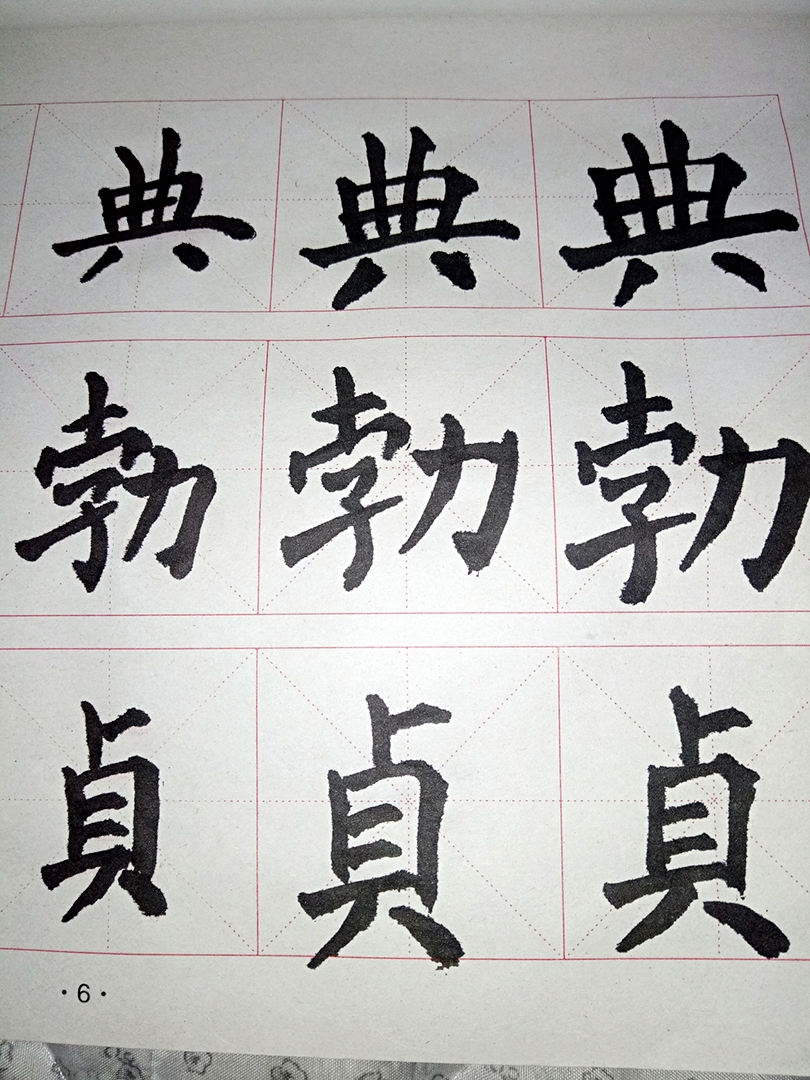 典典典
勃勃勃
貞貞貞
·6·